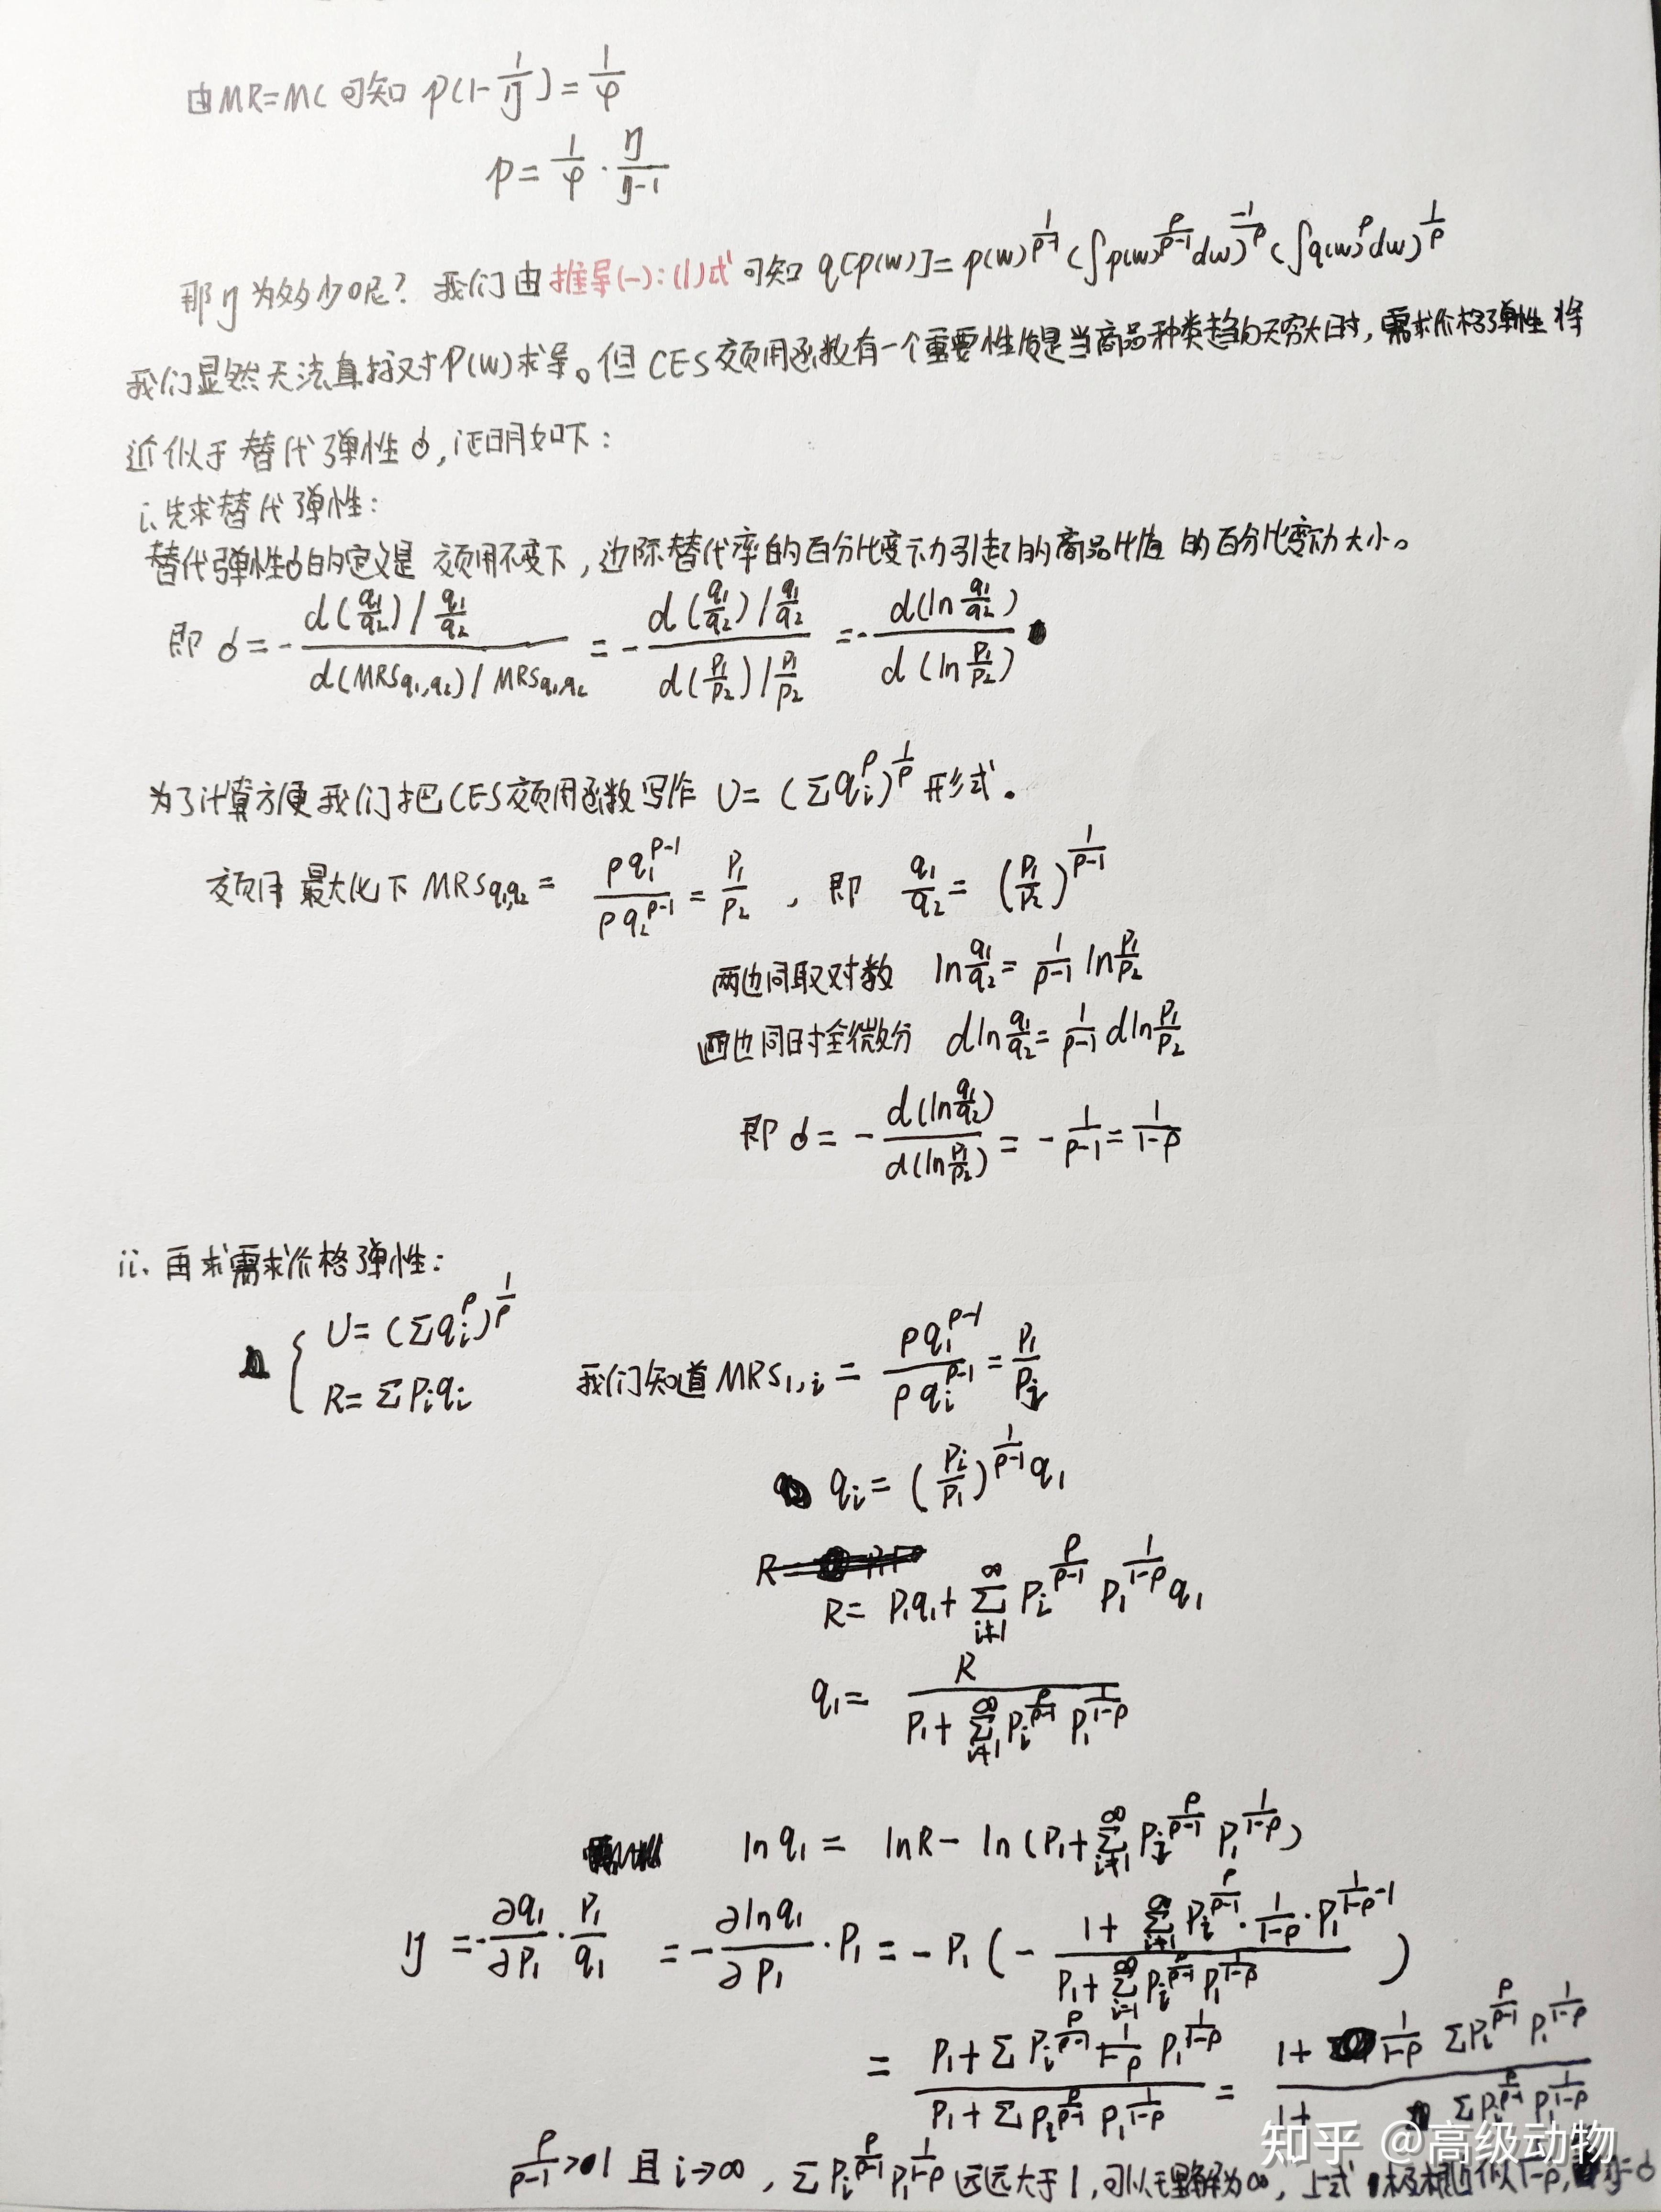 由MR=MC可知 p(1-1/η)=1/φ
p=1/φ·η/(η-1)
那η为多少呢?我们由推导(一):(1)式可知 q[p(w)]=p(w)^(1/(ρ-1)) (∫p(w)^(ρ/(ρ-1))dw)^(-1/ρ) (∫q(w)^ρ dw)^(1/ρ)
我们显然无法直接对P(w)求导。但CES效用函数有一个重要性质是当商品种类趋向无穷大时,需求价格弹性将
近似于替代弹性σ,证明如下:
i.先求替代弹性:
替代弹性σ的定义是 效用不变下,边际替代率的百分比变动引起的商品比值的百分比变动大小。
即 σ=-[d(q₁/q₂)/(q₁/q₂)]/[d(MRSq₁,q₂)/MRSq₁,q₂]=-[d(q₁/q₂)/(q₁/q₂)]/[d(P₁/P₂)/(P₁/P₂)]=-d(ln q₁/q₂)/d(ln P₁/P₂)
为了计算方便我们把CES效用函数写作 U=(Σqᵢ^ρ)^(1/ρ)形式。
效用最大化下MRSq₁,q₂=ρq₁^(ρ-1)/ρq₂^(ρ-1)=P₁/P₂,即 q₁/q₂=(P₁/P₂)^(1/(ρ-1))
两边同取对数 ln q₁/q₂=1/(ρ-1) ln P₁/P₂
两边同时全微分 dln q₁/q₂=1/(ρ-1) dln P₁/P₂
即 σ=-d(ln q₁/q₂)/d(ln P₁/P₂)=-1/(ρ-1)=1/(1-ρ)
ii.再求需求价格弹性:
U=(Σqᵢ^ρ)^(1/ρ)
R=ΣPᵢqᵢ 我们知道MRS₁,ᵢ=ρq₁^(ρ-1)/ρqᵢ^(ρ-1)=P₁/Pᵢ
qᵢ=(Pᵢ/P₁)^(1/(ρ-1)) q₁
R=P₁q₁+Σ_(i≠1)^∞ Pᵢ^(ρ/(ρ-1)) P₁^(1/(1-ρ)) q₁
q₁=R/(P₁+Σ_(i≠1)^∞ Pᵢ^(ρ/(ρ-1)) P₁^(1/(1-ρ)))
ln q₁=lnR-ln(P₁+Σ_(i≠1)^∞ Pᵢ^(ρ/(ρ-1)) P₁^(1/(1-ρ)))
η=-∂q₁/∂P₁·P₁/q₁=-∂lnq₁/∂P₁·P₁=-P₁(-(1+Σ_(i≠1)^∞ Pᵢ^(ρ/(ρ-1))·1/(1-ρ)·P₁^(1/(1-ρ)-1))/(P₁+Σ_(i=1)^∞ Pᵢ^(ρ/(ρ-1)) P₁^(1/(1-ρ))))
=(P₁+ΣPᵢ^(ρ/(ρ-1)) 1/(1-ρ) P₁^(1/(1-ρ)))/(P₁+ΣPᵢ^(ρ/(ρ-1)) P₁^(1/(1-ρ)))=(1+1/(1-ρ) ΣPᵢ^(ρ/(ρ-1)) P₁^(1/(1-ρ)))/(1+ΣPᵢ^(ρ/(ρ-1)) P₁^(1/(1-ρ)))
ρ/(ρ-1)>1且i→∞,ΣPᵢ^(ρ/(ρ-1)) P₁^(1/(1-ρ))远远大于1,可以理解为∞,上式
知乎 @高级动物